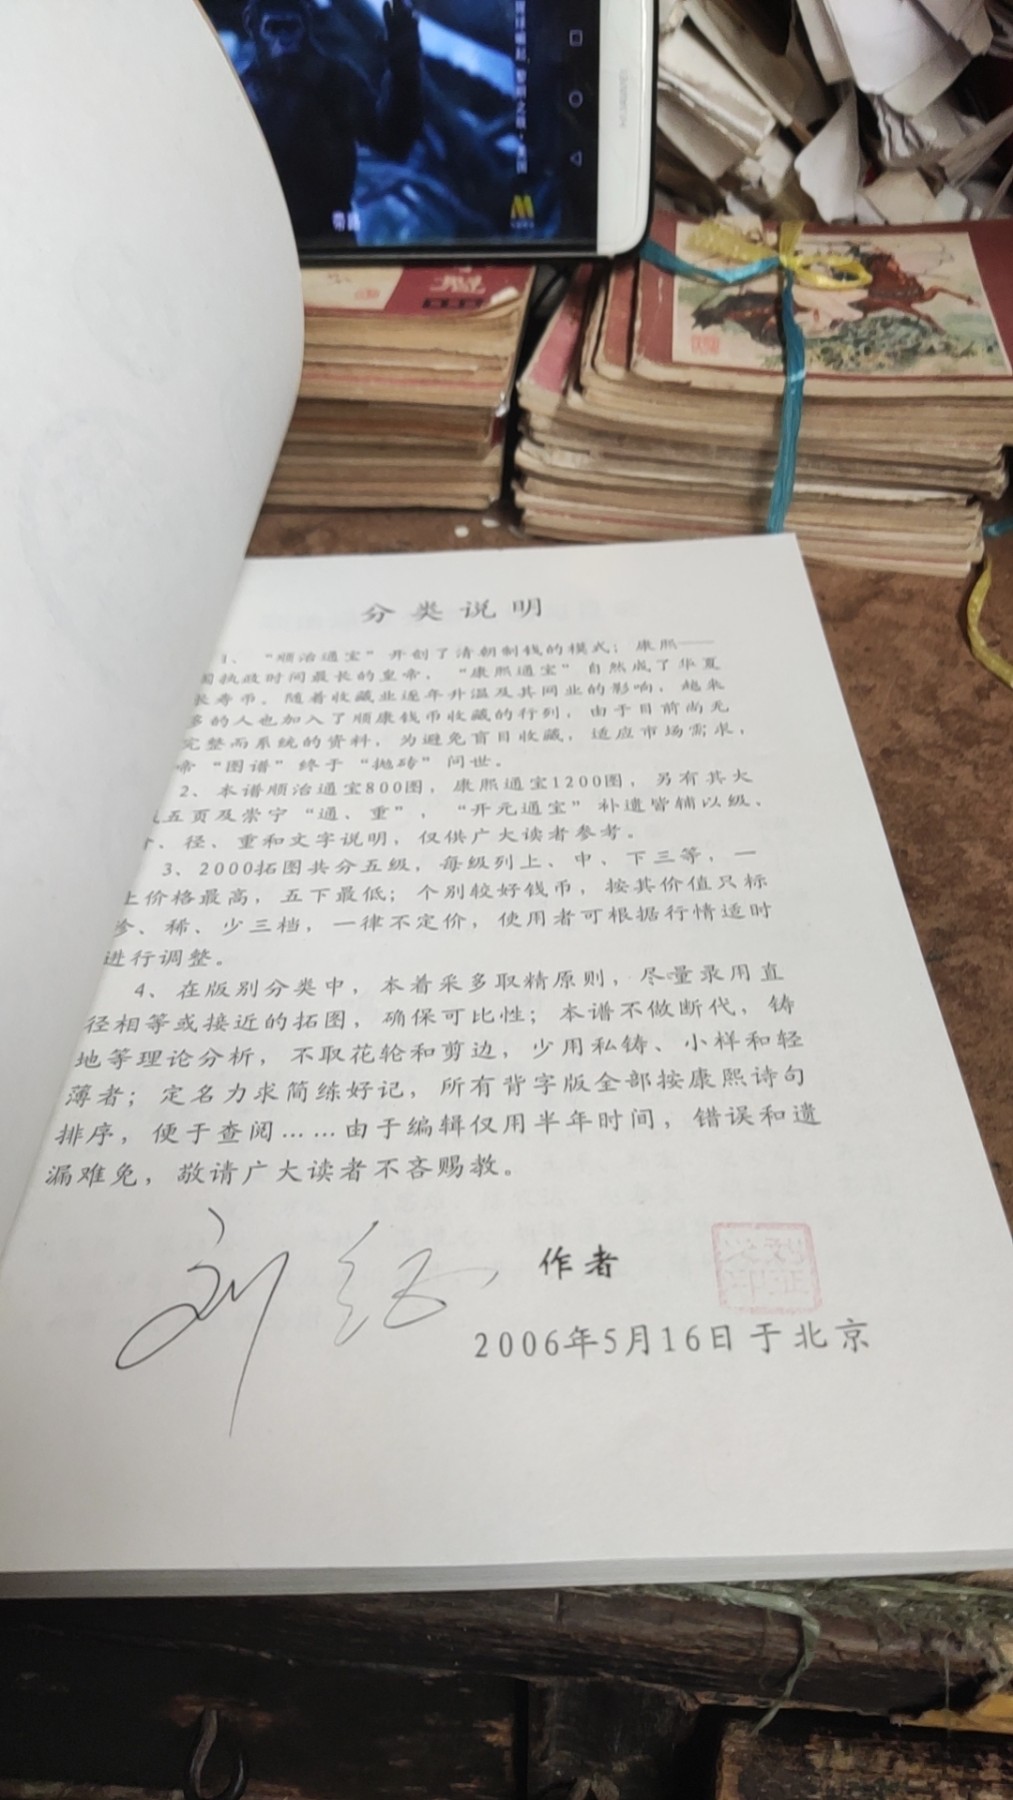 分类说明
1、“顺治通宝”开创了清朝制钱的模式；康熙——
国执政时间最长的皇帝，“康熙通宝”自然成了华夏
长寿币。随着收藏业逐年升温及其同业的影响，越来
多的人也加入了顺康钱币收藏的行列，由于目前尚无
完整而系统的资料，为避免盲目收藏，适应市场需求，
帝“图谱”终于“抛砖”问世。
2、本谱顺治通宝800图，康熙通宝1200图，另有其大
五页及崇宁“通、重”，“开元通宝”补遗皆辅以级、
、径、重和文字说明，仅供广大读者参考。
3、2000拓图共分五级，每级列上、中、下三等，一
上价格最高，五下最低；个别较好钱币，按其价值只标
珍、稀、少三档，一律不定价，使用者可根据行情适时
进行调整。
4、在版别分类中，本着采多取精原则，尽量录用直
径相等或接近的拓图，确保可比性；本谱不做断代，铸
地等理论分析，不取花轮和剪边，少用私铸、小样和轻
薄者；定名力求简练好记，所有背字版全部按康熙诗句
排序，便于查阅……由于编辑仅用半年时间，错误和遗
漏难免，敬请广大读者不吝赐教。
刘
作者
2006年5月16日于北京
HUAWEI